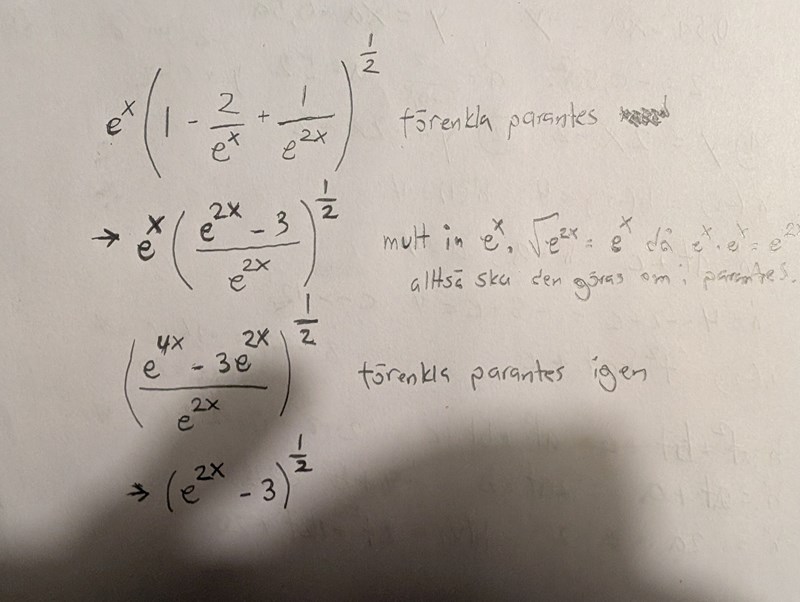 e^x (1 - 2/e^x + 1/e^{2x})^{1/2} förenkla parantes
→ e^x ((e^{2x} - 3)/e^{2x})^{1/2} mult in e^x, √e^{2x} = e^x då e^x · e^x = e^{2x}
alltså ska den göras om i parantes.
((e^{4x} - 3e^{2x})/e^{2x})^{1/2} förenkla parantes igen
→ (e^{2x} - 3)^{1/2}